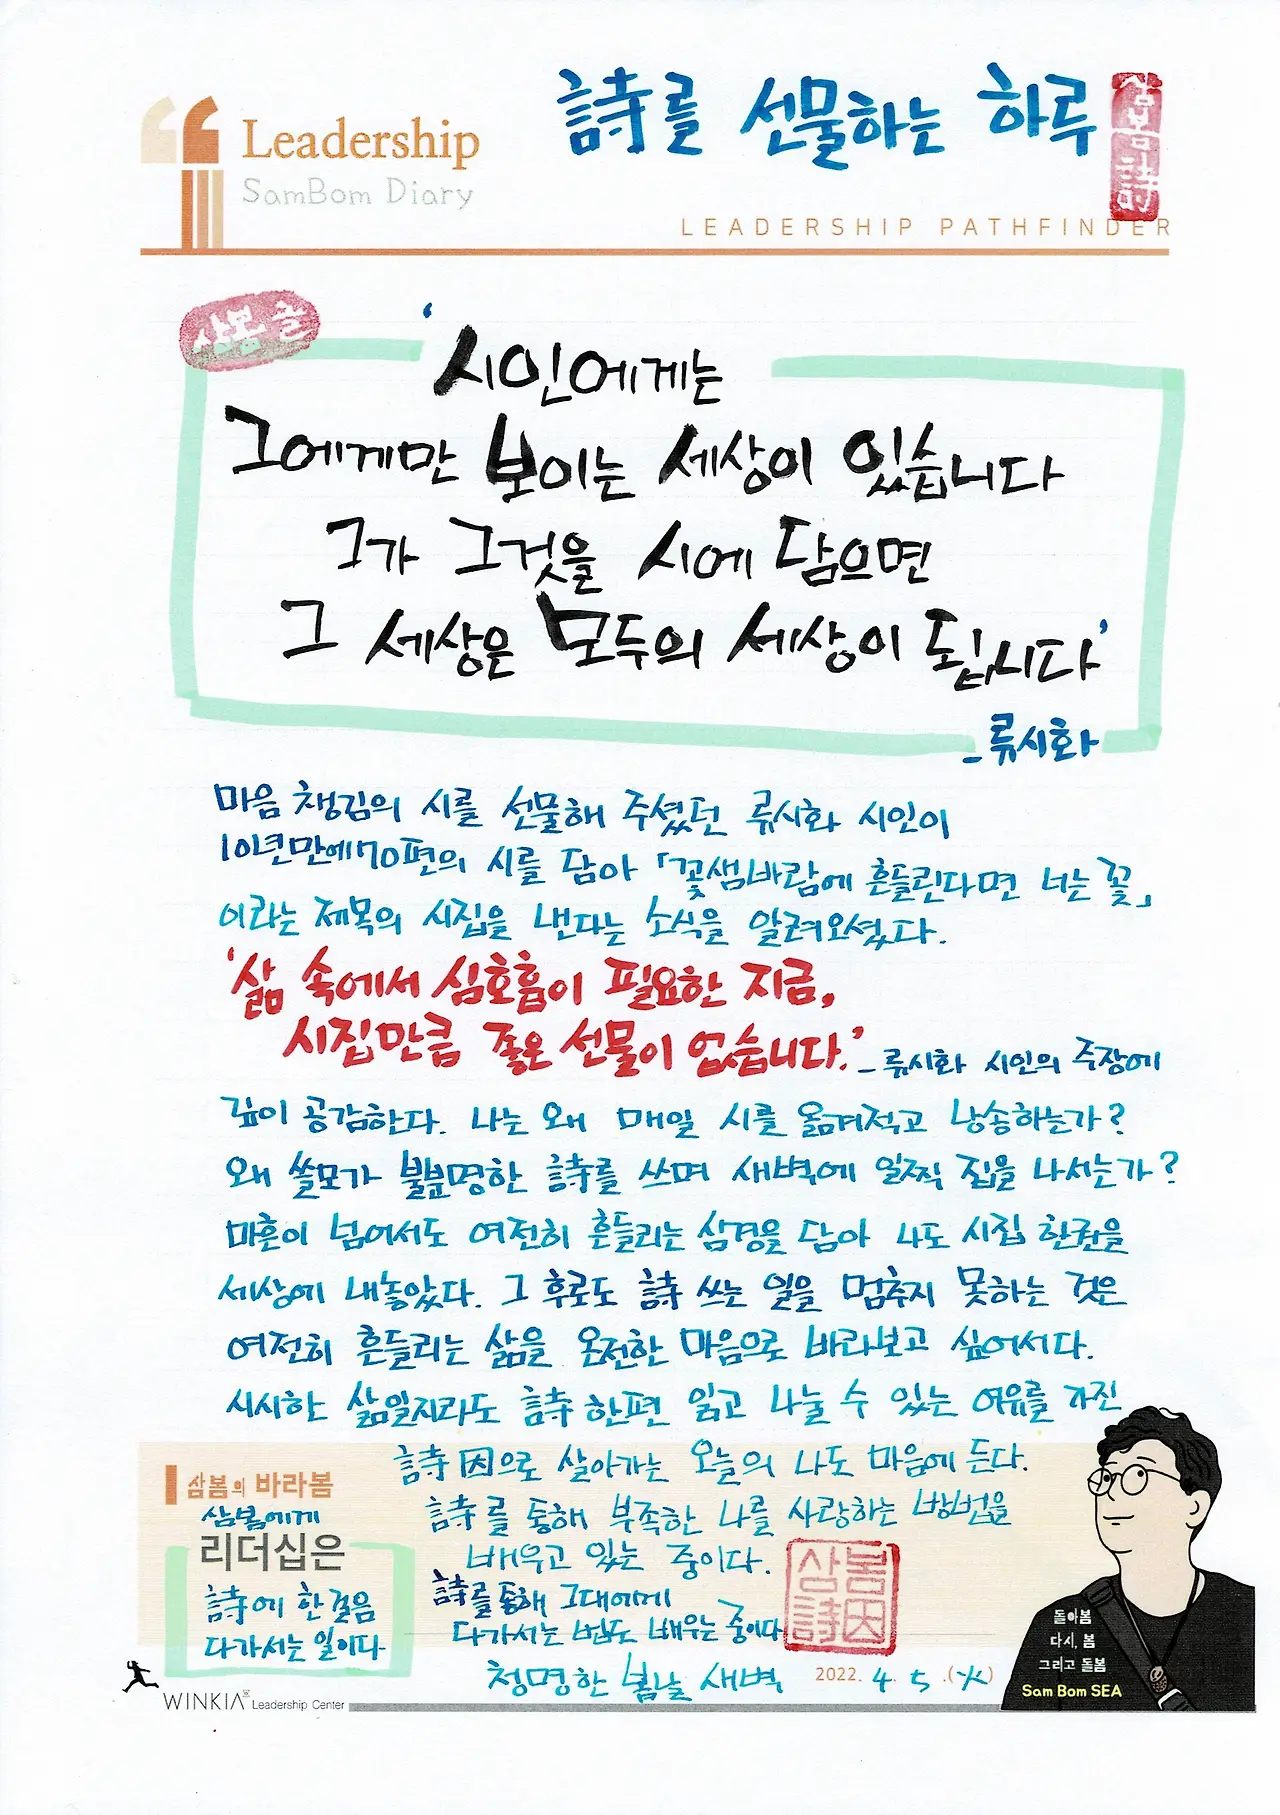 詩를 선물하는 하루
삼봄詩
Leadership
SamBom Diary
LEADERSHIP PATHFINDER
'시인에게는
그에게만 보이는 세상이 있습니다
그가 그것을 시에 담으면
그 세상은 모두의 세상이 됩니다'
- 류시화
마음 챙김의 시를 선물해 주셨던 류시화 시인이
10년만에 70편의 시를 담아 「꽃샘바람에 흔들린다면 너는 꽃」
이라는 제목의 시집을 낸다는 소식을 알려오셨다.
'삶 속에서 심호흡이 필요한 지금,
시집만큼 좋은 선물이 없습니다.' - 류시화 시인의 주장에
깊이 공감한다. 나는 왜 매일 시를 옮겨적고 낭송하는가?
왜 쓸모가 불분명한 詩를 쓰며 새벽에 일찍 집을 나서는가?
마흔이 넘어서도 여전히 흔들리는 삼경을 담아 나도 시집 한권을
세상에 내놓았다. 그 후로도 詩 쓰는 일을 멈추지 못하는 것은
여전히 흔들리는 삶을 온전한 마음으로 바라보고 싶어서다.
시시한 삶일지라도 詩 한편 읽고 나눌 수 있는 여유를 가진
詩因으로 살아가는 오늘의 나도 마음에 든다.
詩를 통해 부족한 나를 사랑하는 방법을
배우고 있는 중이다.
詩를 통해 그대에게
다가서는 법도 배우는 중이다
청명한 봄날 새벽 2022. 4. 5 .(火)
삼봄의 바라봄
삼봄에게
리더십은
詩에 한걸음
다가서는 일이다
삼봄詩因
돌아봄
다시, 봄
그리고 돌봄
Sam Bom SEA
WINKIA Leadership Center